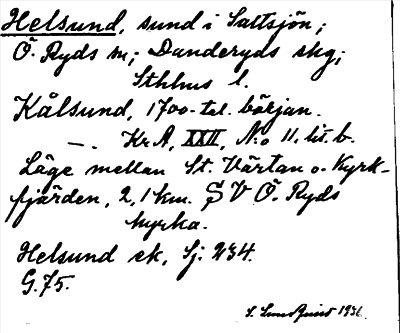 Helsund, sund i Saltsjön;
Ö. Ryds sn; Danderyds skg;
Sthlms l.
Kålsund, 1700-tal. början.
—. Kr A, XXII, N:o 11. lit. b.
Läge mellan St. Värtan o. Kyrk-
fjärden, 2,1 km. SV Ö. Ryds
kyrka.
Helsund ek, Sj. 234.
G. 75.
S. 1936.